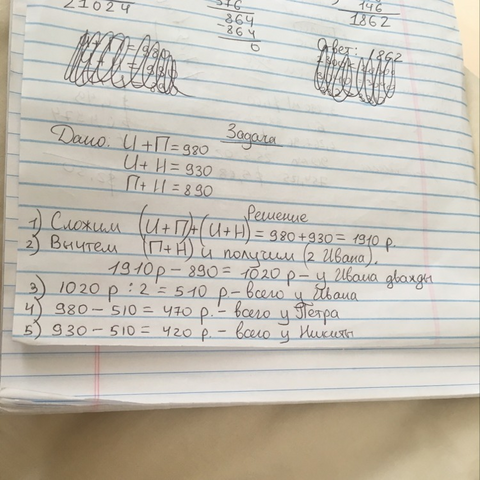 21024
576
-864
-864
0
146
1862
Ответ: 1862
Задача
Дано. И+П=980
И+Н=930
П+Н=890
Решение
1) Сложим (И+П)+(И+Н)=980+930=1910 р.
2) Вычтем (П+Н) и получим (2 Ивана).
1910р-890=1020р-у Ивана дважды
3) 1020 р:2=510 р-всего у Ивана
4) 980-510=470 р.-всего у Петра
5) 930-510=420 р.-всего у Никиты